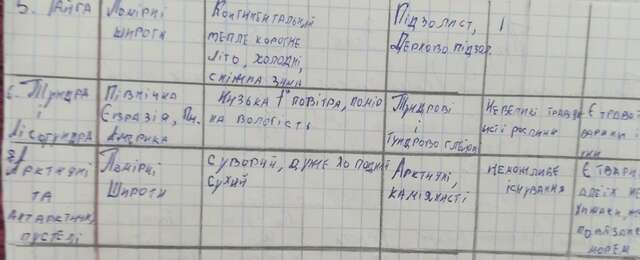 5. Тайга
Помірні
широти
Континентальний
тепле коротке
літо, холодні,
сніжна зима
Підзолист,
Дерново підзол.
6. Тундра
і
Лісотундра
Північна
Євразія, Пн.
Америка
Низька t° повітря, помір
на вологість
Тундрові
і
тундрово глейові
невеликі
рослини
Є траво
Арктичні
та
антарктичні
пустелі
Помірні
Широти
Суворий, дуже холодний
сухий
Арктичні,
кам'янисті
неможливе
існування
Є твари
морем